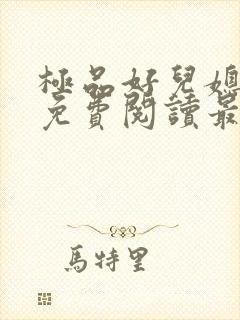 極品好兒媳
免費閱讀最
馬特里